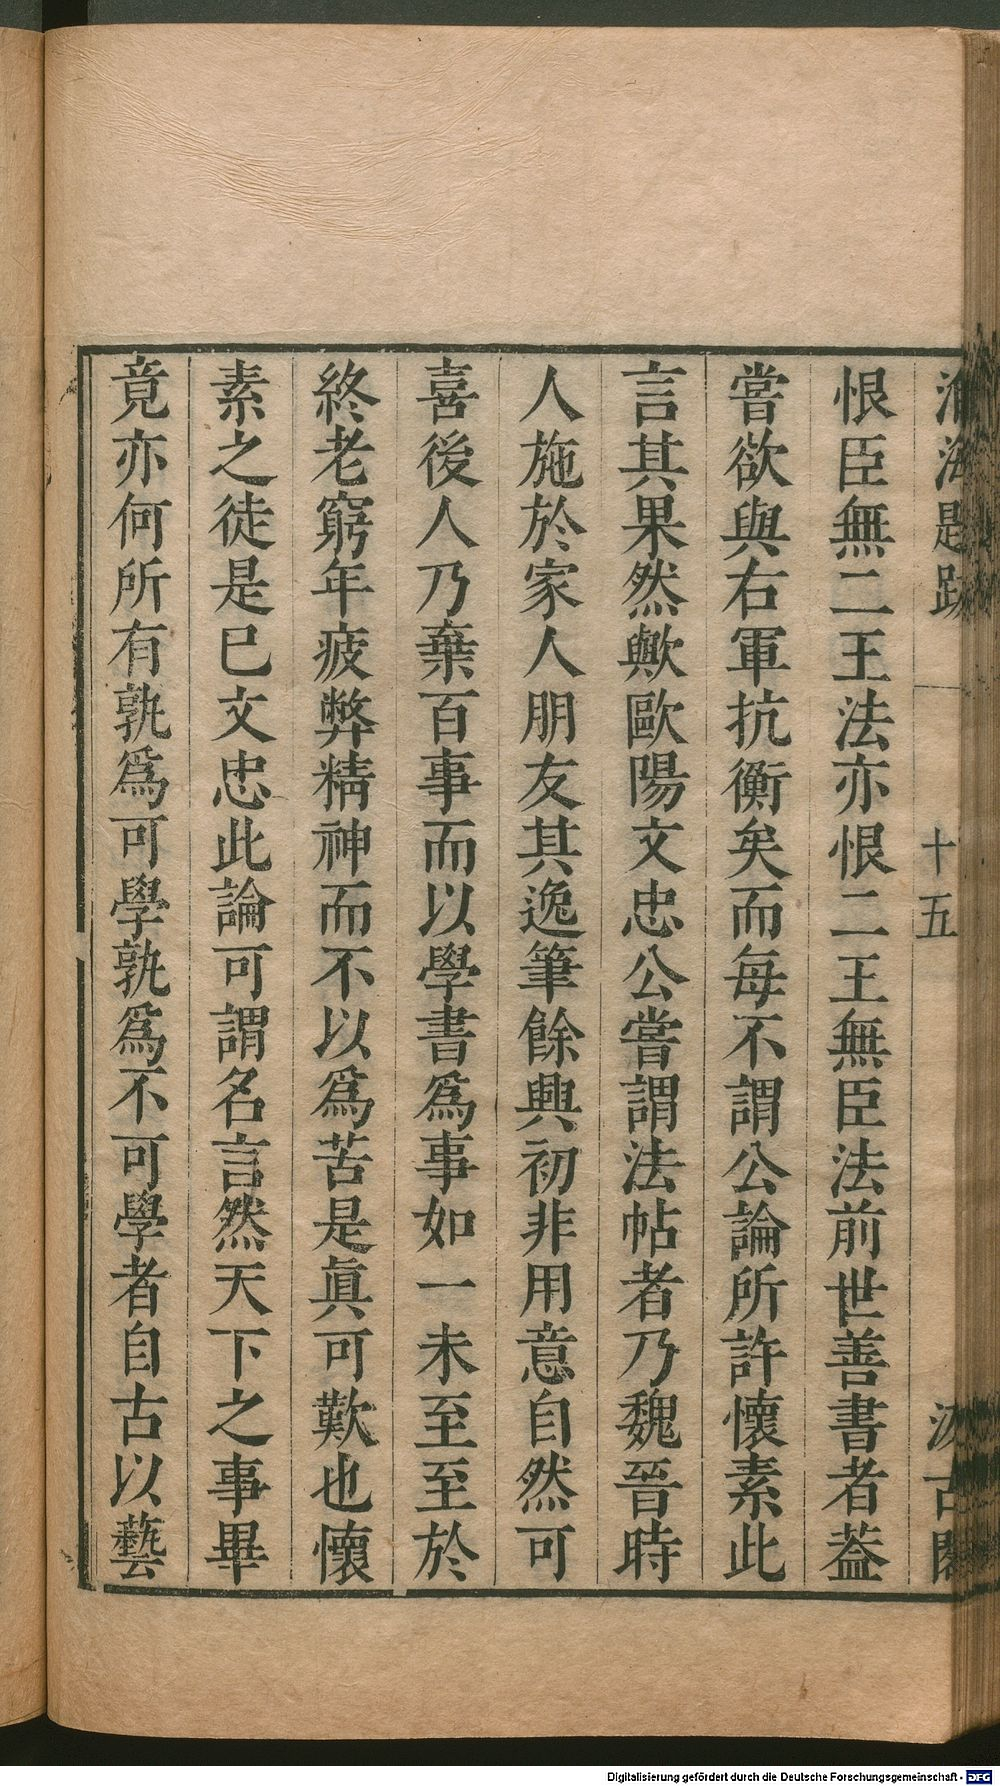 海題跋
十五
汲古閣
恨臣無二王法亦恨二王無臣法前世善書者葢
嘗欲與右軍抗衡矣而每不謂公論所許懷素此
言其果然歟歐陽文忠公嘗謂法帖者乃魏晉時
人施於家人朋友其逸筆餘興初非用意自然可
喜後人乃棄百事而以學書爲事如一未至至於
終老窮年疲弊精神而不以爲苦是眞可歎也懷
素之徒是已文忠此論可謂名言然天下之事畢
竟亦何所有孰爲可學孰爲不可學者自古以藝
Digitalisierung gefördert durch die Deutsche Forschungsgemeinschaft - DFG